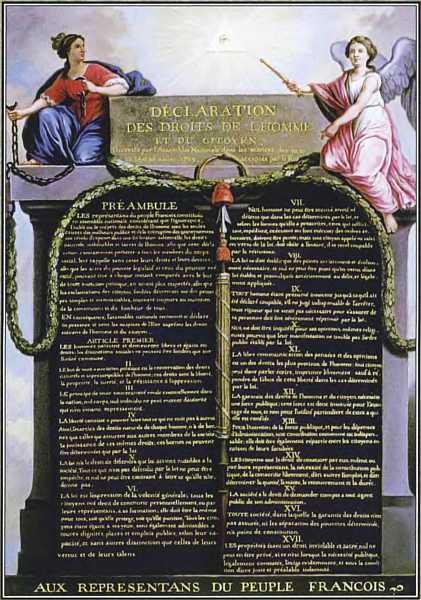 DÉCLARATION
DES DROITS DE L'HOMME
ET DU CITOYEN,
Décrétés par l'Assemblée Nationale dans les séances des 20, 21
PRÉAMBULE
LES représentans du peuple François, constitués
en assemblée nationale, considérant que l'ignorance,
l'oubli ou le mépris des droits de l'homme sont les seules
causes des malheurs publics et de la corruption des gouvernemens
ont résolu d'exposer dans une déclaration solemnelle, les droits
naturels, inaliénables et sacrés de l'homme; afin que cette décla-
ration constamment présente à tous les membres du corps
social, leur rappelle sans cesse leurs droits et leurs devoirs;
afin que les actes du pouvoir législatif et ceux du pouvoir exé-
cutif, pouvant être à chaque instant comparés avec le but
de toute institution politique, en soient plus respectés; afin que
les réclamations des citoyens, fondées désormais sur des princi-
pes simples et incontestables, tournent toujours au maintien
de la constitution et du bonheur de tous.
EN conséquence, l'assemblée nationale reconnoit et déclare
en présence et sous les auspices de l'Être suprême les droits
suivans de l'homme et du citoyen.
ARTICLE PREMIER
LES hommes naissent et demeurent libres et égaux en
droits; les distinctions sociales ne peuvent être fondées que sur
l'utilité commune.
II.
LE but de toute association politique est la conservation des droits
naturels et imprescriptibles de l'homme; ces droits sont la liberté,
la propriété, la sureté, et la résistance à l'oppression.
III.
LE principe de toute souveraineté réside essentiellement dans
la nation, nul corps, nul individu ne peut exercer d'autorité
qui n'en émane expressement.
IV.
LA liberté consiste à pouvoir faire tout ce qui ne nuit pas à autrui
Ainsi, l'exercice des droits naturels de chaque homme, n'a de bor-
nes que celles qui assurent aux autres membres de la société
la jouissance de ces mêmes droits; ces bornes ne peuvent
être déterminées que par la loi
V.
LA loi n'a le droit de défendre que les actions nuisibles à la
société. Tout ce qui n'est pas défendu par la loi ne peut être
empêché, et nul ne peut être contraint à faire ce qu'elle n'or-
donne pas.
VI.
LA loi est l'expression de la volonté générale; tous les
citoyens ont droit de concourir personnellement, ou par
leurs représentans, à sa formation; elle doit être la même
pour tous, soit qu'elle protege, soit qu'elle punisse. Tous les cito-
yens étant égaux à ses yeux, sont également admissibles à
toutes dignités, places et emplois publics, selon leur ca-
pacité, et sans autres distinction que celles de leurs
vertus et de leurs talens.
VII.
NUL homme ne peut être accusé, arreté ni
détenu que dans les cas déterminés par la loi, et
selon les formes qu'elle a prescrites, ceux qui sollici-
tent, expédient, exécutent ou font exécuter des ordres arbi-
traires, doivent être punis; mais tout citoyen appelé ou saisi
en vertu de la loi, doit obéir à l'instant, il se rend coupable
par la résistance.
VIII.
LA loi ne doit établir que des peines strictement et évidem-
ment nécessaires, et nul ne peut être puni qu'en vertu d'une
loi établie et promulguée antérieurement au délit, et légale-
ment appliquée.
IX.
TOUT homme étant présumé innocent jusqu'à ce qu'il ait
été déclaré coupable, s'il est jugé indispensable de l'arrêter,
toute rigueur qui ne seroit pas nécessaire pour s'assurer de
sa personne doit être sévèrement réprimée par la loi.
X.
NUL ne doit être inquiété pour ses opinions, mêmes religi-
euses pourvu que leur manifestation ne trouble pas l'ordre
public établi par la loi.
XI.
LA libre communication des pensées et des opinions
est un des droits les plus précieux de l'homme; tout citoyen
peut donc parler, écrire, imprimer librement: sauf à ré-
pondre de l'abus de cette liberté dans les cas déterminés
par la loi.
XII.
LA garantie des droits de l'homme et du citoyen nécessite
une force publique; cette force est donc instituée pour l'avan-
tage de tous, et non pour l'utilité particuliere de ceux à qui
elle est confiée.
XIII.
POUR l'entretien de la force publique, et pour les dépenses
d'administration, une contribution commune est indispen-
sable; elle doit être également répartie entre les citoyens en
raison de leurs facultées.
XIV.
LES citoyens ont le droit de constater par eux mêmes ou
par leurs représentans, la nécessité de la contribution publi-
que, de la consentir librement, d'en suivre l'emploi, et d'en
déterminer la quotité, l'assiette, le recouvrement et la durée.
XV.
LA société a le droit de demander compte à tout agent
public de son administration.
XVI.
TOUTE société, dans laquelle la garantie des droits n'est
pas assurée, ni la séparation des pouvoirs déterminée,
n'a point de constitution.
XVII.
LES propriétés étant un droit inviolable et sacré, nul ne
peut en être privé, si ce n'est lorsque la nécessité publique,
légalement constatée, l'exige évidemment, et sous la condi-
tion d'une juste et préalable indemnité.
AUX REPRESENTANS DU PEUPLE FRANCOIS